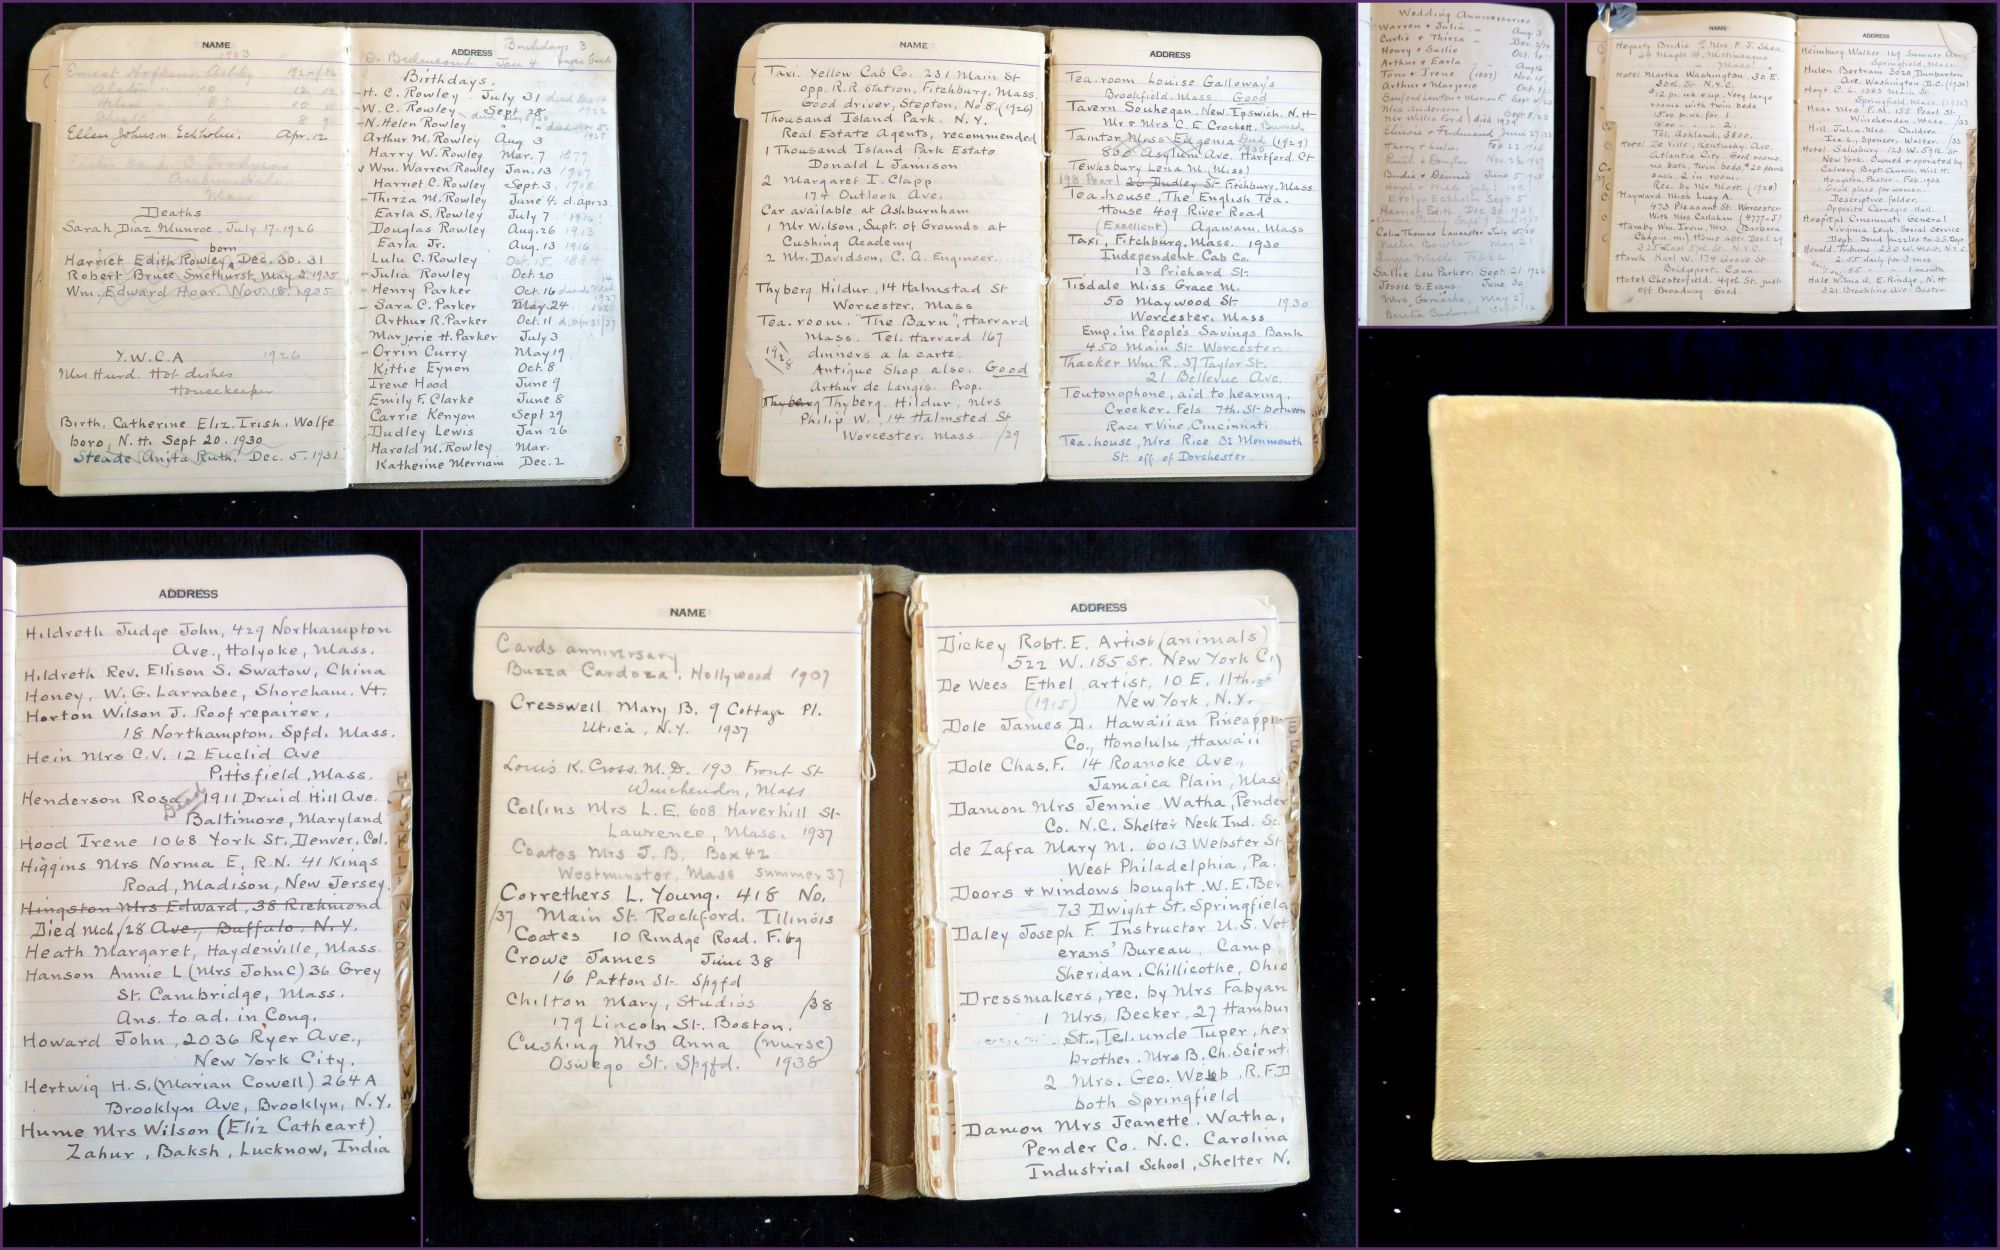 NAME
1923
Ernest Hopkins Ashby
Ellen Johnsn. Eckholm. Apr. 12
Auburndale
Mass
Deaths
Sarah Diaz Munroe, July 17. 1926
born
Harriet Edith Rowley, Dec. 30. 31
Robert Bruce Smethurst, May 2. 1935
Wm. Edward Hoar. Nov. 18. 1935
Y.W.C.A 1926
Mrs Hurd. Hot dishes
Housekeeper
Birth. Catherine Eliz. Irish. Wolfe
boro, N.H. Sept 20. 1930
Steade Anita Ruth. Dec. 5. 1931
ADDRESS
Birthdays 3
pages back
Birthdays.
H. C. Rowley July 31
W. C. Rowley Sept 28
N. Helen Rowley
Arthur M. Rowley Aug 3
Harry W. Rowley Mar. 7 1877
Wm. Warren Rowley Jan. 13 1907
Harriet C. Rowley Sept. 3, 1908
Thirza M. Rowley June 4. d. apr 23.
Earla S. Rowley July 7
Douglas Rowley Aug. 26 1913
Earla Jr. Aug. 13 1916
Lulu C. Rowley Oct. 15. 1884
Julia Rowley Oct. 20
Henry Parker Oct. 16
Sara C. Parker May 24
Arthur R. Parker Oct. 11
Marjorie H. Parker July 3
Orrin Curry May 19
Kittie Eynon Oct. 8
Irene Hood June 9
Emily F. Clarke June 8
Carrie Kenyon Sept 29
Dudley Lewis Jan 26
Harold M. Rowley Mar.
Katherine Merriam Dec. 2
NAME
Taxi. Yellow Cab Co. 231 Main St
opp. R.R. station, Fitchburg, Mass.
Good driver, Stepton, No 8. (1926)
Thousand Island Park. N.Y.
Real Estate Agents, recommended
1 Thousand Island Park Estate
Donald L Jamison
2 Margaret I. Clapp
17+ Outlook Ave.
Car available at Ashburnham
1 Mr Wilson, Supt. of Grounds at
Cushing Academy
2 Mr. Davidson, C. A. Engineer.
Thyberg Hildur, 14 Halmstad St
Worcester, Mass
Tea-room. "The Barn", Harvard
Mass. Tel. Harvard 167
1928 dinners a la carte.
Antique Shop also. Good
Arthur de Langis. Prop.
Thyberg Thyberg. Hildur, Mrs
Philip W., 14 Halmsted St
Worcester, Mass. /29
ADDRESS
Tea-room Louise Galloway's
Brookfield. Mass. Good
Tavern Souhegan, New Ipswich. N.H
Mr & Mrs C. E. Crockett. Burned
Taintor Miss Eugenia Died 1930 (1929)
560 Asylum Ave. Hartford. Ct
Tewksbury Lena M. (Miss)
198 Pearl 26 Dudley St. Fitchburg, Mass.
Tea-house, The English Tea-
House 409 River Road
(Excellent) Agawam, Mass
Taxi, Fitchburg, Mass. 1930
Independent Cab Co.
13 Prichard St.
Tisdale Miss Grace M.
50 Maywood St. 1930
Worcester, Mass
Emp. in People's Savings Bank
450 Main St Worcester.
Thacker Wm. R. 37 Taylor St.
21 Bellevue Ave.
Teutonophone, aid to hearing.
Crocker-Fels 7th. St between
Race & Vine, Cincinnati
Tea-house, Mrs Rice 32 Monmouth
St. off of Dorchester.
Wedding Anniversaries
Warren & Julia - Aug. 3
Curtis & Thirza - Dec. 2/
Henry & Sallie
Arthur & Earla - Aug 16
Tom & Irene (1887) Nov. 15.
Arthur & Marjorie Oct. 1
Elmore & Ferdinand June 27
Harry & Lulu. Feb 22.
Pearl & Douglas Nov. 26. 1937
Evelyn Eckholm Sept 5
Harriet Edith. Dec 30. 1931
Colin Thomas Lancaster July 15/35
Sallie Lou Parker. Sept. 21. 1926
Jessie S. Evans. June. 30.
Mrs. Garniche, May 27
NAME
Hegarty Bridie % Mrs. P. J. Shea.
Maple St., Mittineague
Mass.
Hotel Martha Washington. 30 E.
30th St. N.Y.C.
$12 pr. wk & up. Very large
rooms with twin beds
15.00 pr. wk. for 1
18.00 " " " 2
Tel. Ashland, 3800.
Hotel De Ville, Kentucky Ave.
Atlantic City. Good rooms.
no bath, twin beds, $20 pr wk
each, 2 in room.
Rec. by Mr. Mort. (1928)
Hayward Miss Lucy A.
473 Pleasant St. Worcester
With Mrs Callahan (4777-J)
Hamby Wm. Irwin, Mrs. (Barbara
Chapin. m.) Home after Dec 1. 29
325 East 57th St. N.Y.C.
Herald Tribune 230 W. 41st St. N.Y.C.
2.55 daily for 3 mos
85 " " 1 month
Hawk Karl W. 174 Grove St
Bridgeport. Conn.
Hotel Chesterfield. 49th St. just
off Broadway. Good.
ADDRESS
Heimburg Walker 129 Sumner Ave,
Springfield, Mass.
Hulen Bertram 3020 Dumbarton
Ave. Washington D.C. (1930)
Hoyt C. L. 1283 Main St
Springfield, Mass. (1932)
Hoar Mrs. F. M. 155 Pearl St.
Winchendon, Mass. /33
Hill Julia. Mrs. Children
Ira L., Spencer. Walter. /35
Hotel Salisbury 123 W. 57th St
New York. Owned & operated by
Calvary Bapt. Church. Will H.
Houghton, Pastor. Feb. 1933
Good place for women.
Descriptive folder.
Opposite Carnegie Hall.
Hospital Cincinnati General
Virginia Leigh, Social Service
Dept. Send puzzles to S.S. Dept
Hale Wilma d. E. Rindge, N.H
321 Brookline Ave. Boston
ADDRESS
Hildreth Judge John, 429 Northampton
Ave., Holyoke, Mass.
Hildreth Rev. Ellison S. Swatow, China
Honey, W. G. Larrabee, Shoreham. Vt.
Horton Wilson J. Roof repairer,
18 Northampton, Spfd. Mass.
Hein Mrs C. V. 12 Euclid Ave
Pittsfield, Mass.
Henderson Rosa Dead 1911 Druid Hill Ave.
Baltimore, Maryland
Hood Irene 1068 York St., Denver, Col.
Higgins Mrs Norma E, R.N. 41 Kings
Road, Madison, New Jersey.
Hingston Mrs Edward, 38 Richmond
Died Mch/28 Ave., Buffalo, N.Y.
Heath Margaret, Haydenville, Mass.
Hanson Annie L (Mrs John C) 36 Grey
St. Cambridge, Mass.
Ans. to ad. in Cong.
Howard John, 2036 Ryer Ave.,
New York City.
Hertwig H. S. (Marian Cowell) 264 A
Brooklyn Ave, Brooklyn, N.Y.
Hume Mrs Wilson (Eliz Catheart)
Zahur, Baksh, Lucknow, India
NAME
Cards anniversary
Buzza Cardoza, Hollywood 1937
Cresswell Mary B. 9 Cottage Pl.
Utica, N.Y. 1937
Louis K. Cross. M.D. 193 Front St
Winchendon, Mass
Collins Mrs L. E. 608 Haverhill St-
Lawrence, Mass. 1937
Coates Mrs J. B. Box 42
Westminster, Mass summer 37
Correthers L. Young. 418 No.
/37 Main St. Rockford. Illinois
Coates 10 Rindge Road. F.bg
Crowe James June 38
16 Patton St. Spgfd
Chilton Mary, Studios /38
179 Lincoln St. Boston.
Cushing Mrs Anna (nurse)
Oswego St. Spgfd. 1938
ADDRESS
Dickey Robt. E. Artist (animals)
522 W. 185 St. New York Ci
De Wees Ethel, artist, 10 E. 11th. St
(1915) New York, N.Y.
Dole James D. Hawaiian Pineapple
Co., Honolulu, Hawaii
Dole Chas. F. 14 Roanoke Ave.,
Jamaica Plain, Mass
Damon Mrs Jennie Watha, Pender
Co. N.C. Shelter Neck Ind. Sc.
de Zafra Mary M. 6013 Webster St
West Philadelphia, Pa.
Doors & windows bought. W. E. Ber
73 Dwight St. Springfield
Daley Joseph F. Instructor U.S. Vet
erans' Bureau, Camp
Sheridan, Chillicothe, Ohio
Dressmakers, rec. by Mrs Fabyan
1 Mrs. Becker, 27 Hambur
St., Tel. unde Tuper, her
brother. Mrs B. Ch. Scient.
2 Mrs. Geo. Webb. R.F.D
both Springfield
Damon Mrs Jeanette. Watha,
Pender Co. N.C. Carolina
Industrial School, Shelter N.